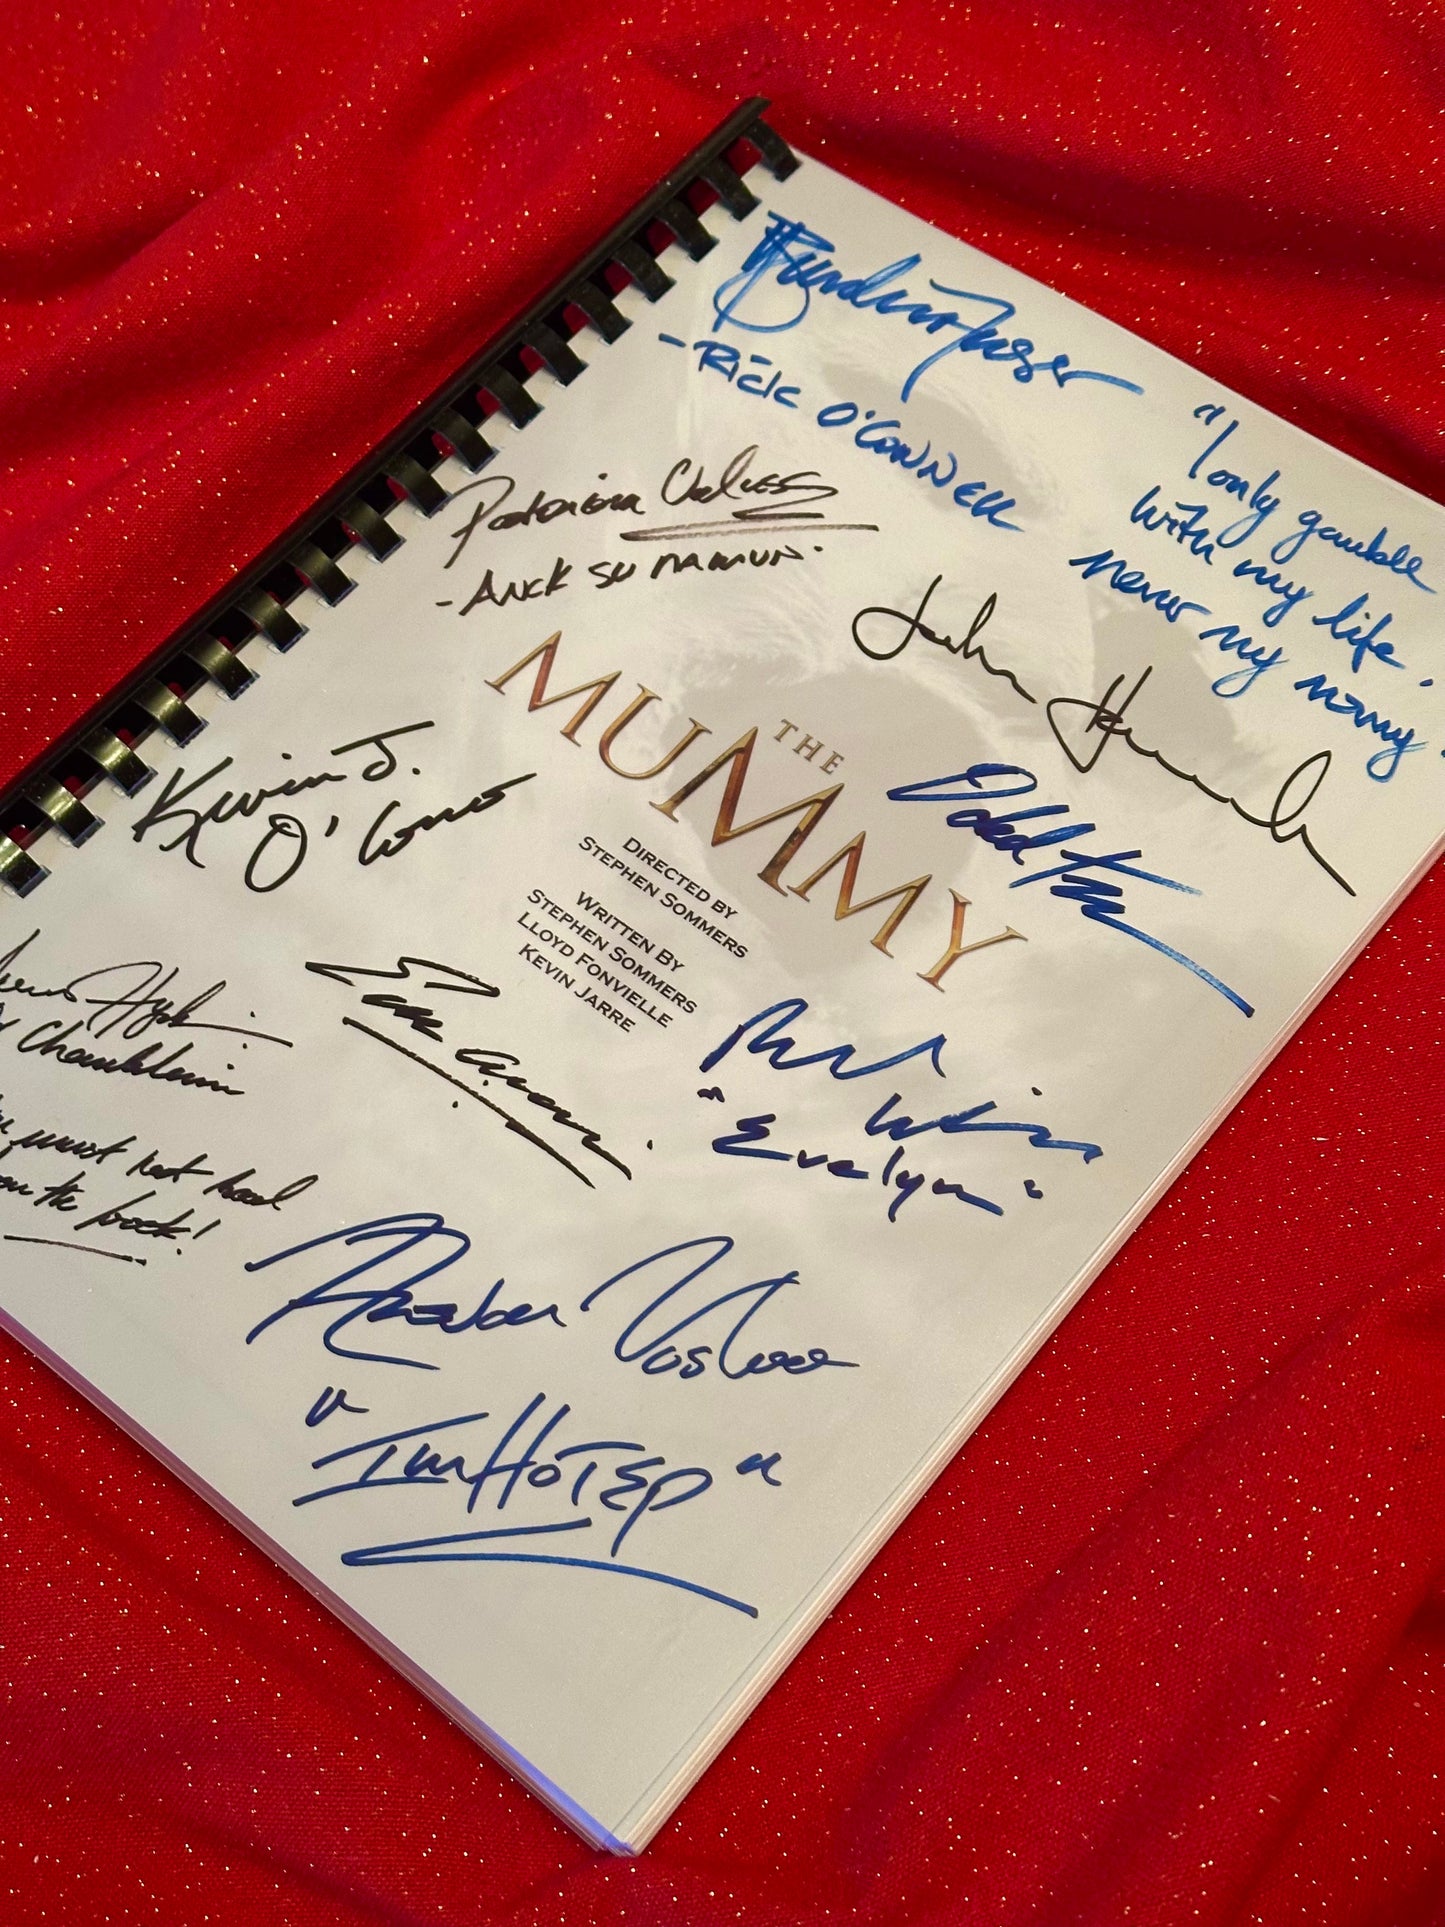 Brendan Fraser
- RICK O'CONNELL
"I only gamble
with my life.
Never my money."
Patricia Velasquez
- ANCK SU NAMUN.
John Hannah
THE
MUMMY
Oded Fehr
Kevin J.
O'Connor
DIRECTED BY
STEPHEN SOMMERS
WRITTEN BY
STEPHEN SOMMERS
LLOYD FONVIELLE
KEVIN JARRE
Hyde
Chamberlain
must not read
the book!
"Evelyn"
Arnold Vosloo
"IMHOTEP"